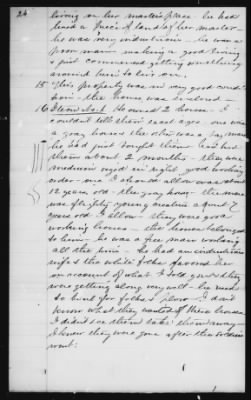 24
living on her master's place he had
leased a piece of land of her master -
he was very industrious - he was a
poor man making a good living
& just commenced getting something
around him to live on.
15 This property was in very good condi-
tion the horses was
16 He owned 2 horses I
couldn't tell their exact ages. one was
a gray horse & the other was a bay mare
he had just bought them had had
them about 2 months - they was
medium sized in right good working
order - one I should allow was about
12 years old the gray horse - the mare
was a flighty young creature about 7
years old I allow - they were good
working horses - the horses belonged
to him - he was a free man working
all the time he had an industrious
wife & the white folks favored her
on account of what I told you & they
were getting along very well - he used
to hire for folks & plow - I don't
know what they wanted of these horses
I didn't see them take them away
I knew they were gone after the soldiers
went.